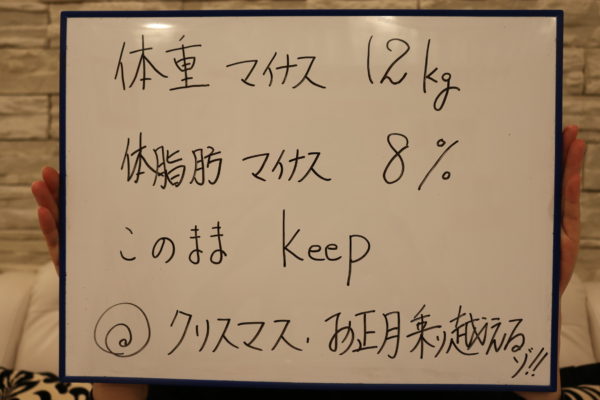 体重 マイナス 12kg
体脂肪 マイナス 8%
このまま keep
クリスマス、お正月乗り越えるゾ!!